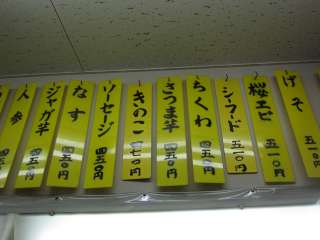 げそ 五一〇円
桜エビ 五一〇円
シーフード 五一〇円
ちくわ 四五〇円
さつま竿 四五〇円
きのこ 四七〇円
ソーセージ 四五〇円
なす 四五〇円
ジャガ竿 四五〇円
人参